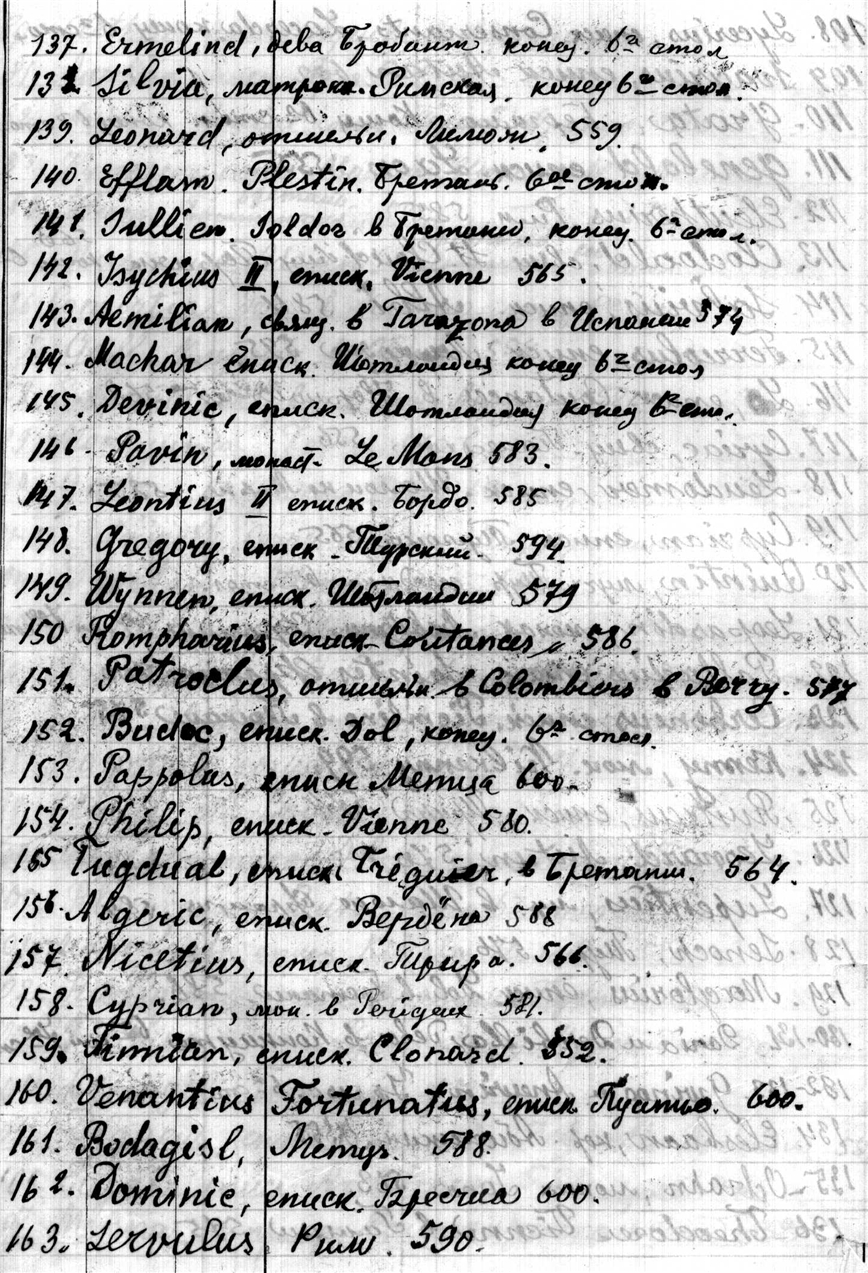 137. Ermelind, дева Брабант. конец. 6го стол
138. Silvia, матрона. Римская. конец 6го стол.
139. Leonard, отшельн. Лимож. 559.
140. Efflam. Plestin. Бретань. 6ое стол.
141. Sullien. в Бретани, конец. 6го стол.
142. Isychius II, еписк. Vienne 565.
143. Aemilian, свящ. в Tarazona в Испании 574
144. Machar еписк. Шотландия конец 6го стол
145. Devinic, еписк. Шотландия конец 6го сто.
146. Pavin, монах. Le Mans 583.
147. Leontius II еписк. Бордо. 585
148. Gregory, еписк. Турский. 594.
149. Wynnen, еписк. Шотландии 579
150 Rompharius, еписк. Coutances, 586.
151. Patroclus, отшельн. в Colombiers в Berry. 577
152. Budoc, еписк. Dol, конец. 6го стол.
153. Pappolus, еписк Метца 600.
154. Philip, еписк. Vienne 580.
155 Tugdual, еписк. Tréguier, в Бретани. 564.
156. Algeric, еписк. Вердёна 588
157. Nicetius, еписк. Трира. 566.
158. Cyprian, мон. в 581.
159. Finnian, еписк. Clonard. 552.
160. Venantius Fortunatus, еписк. Пуатье. 600.
161. Bodagisl, Метц. 588.
162. Dominic, еписк. Бресчиа 600.
163. Servulus Рим. 590.